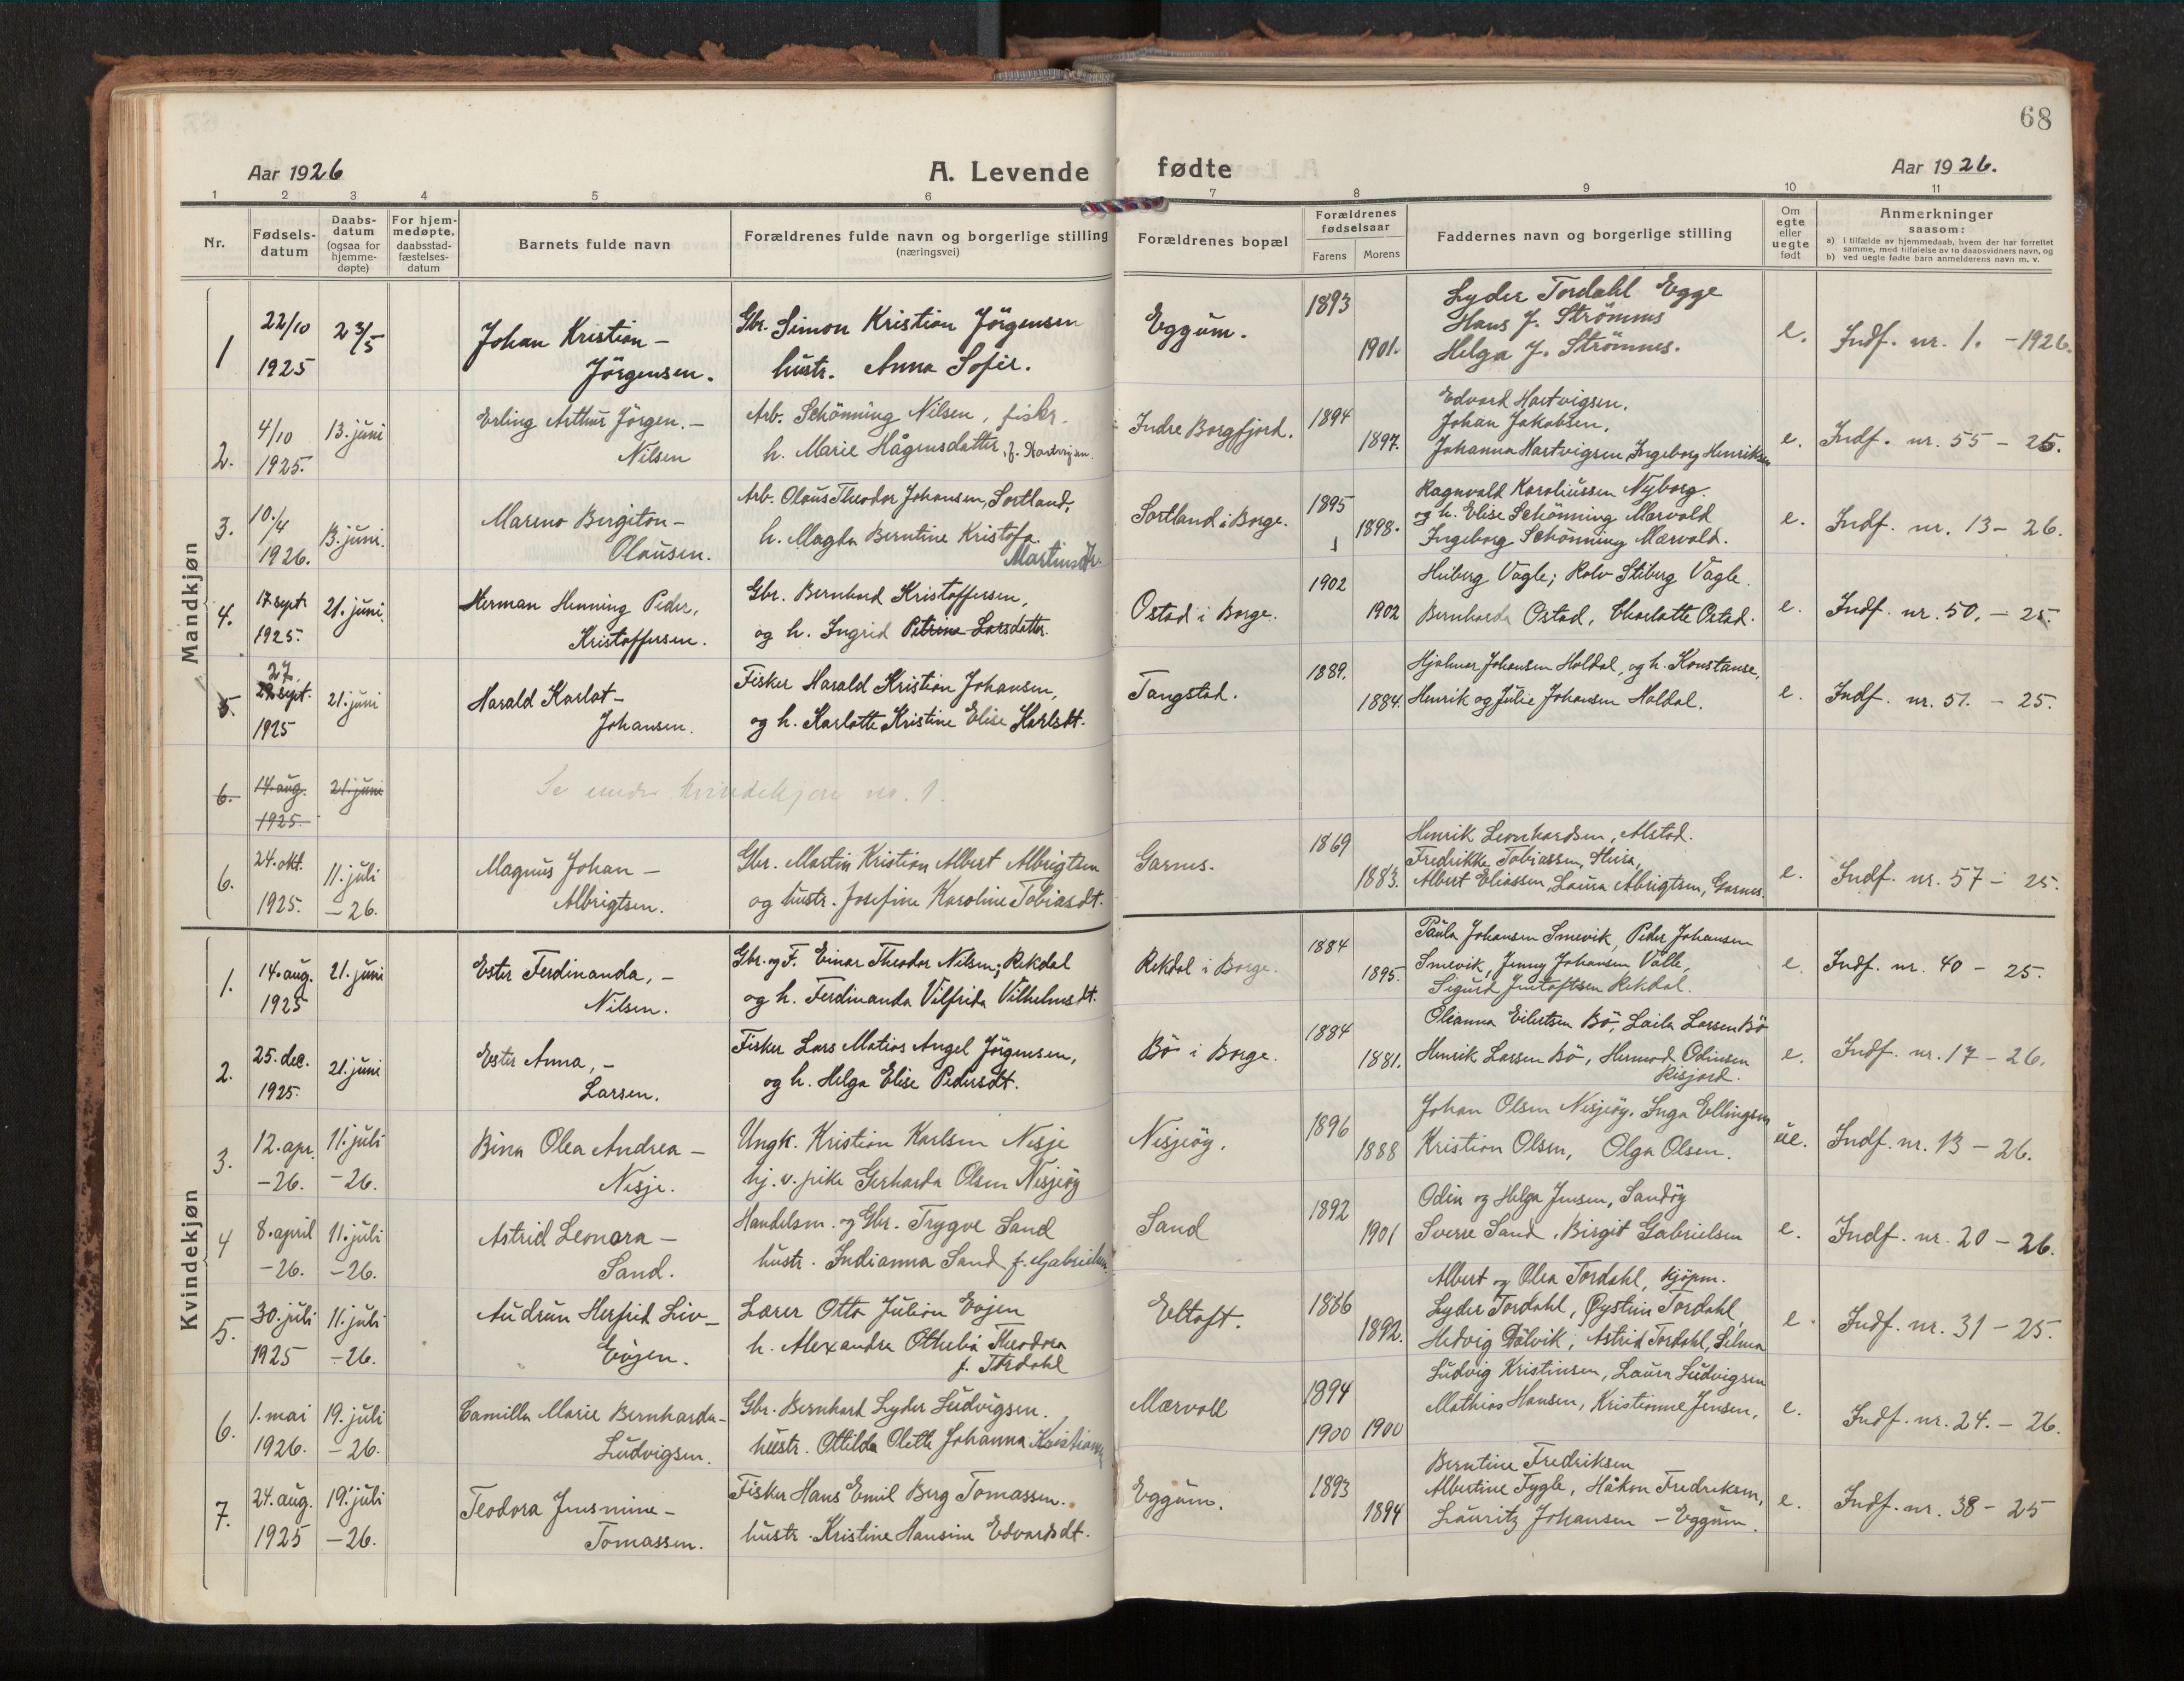 68
Aar 1926
A. Levende
fødte
Aar 1926.
1 2 3 4 5 6 7 8 9 10 11
Nr.
Fødsels-
datum
Daabs-
datum
(ogsaa for
hjemme-
døpte)
For hjem-
medøpte,
daabsstad-
fæstelses-
datum
Barnets fulde navn
Forældrenes fulde navn og borgerlige stilling
(næringsvei)
Forældrenes bopæl
Forældrenes
fødselsaar
Farens
Morens
Faddernes navn og borgerlige stilling
Om
egte
eller
uegte
født
Anmerkninger
saasom:
a) I tilfælde av hjemmedaab, hvem der har forrettet
samme, med tilføielse av to daabsvidners navn, og
b) ved uegte fødte barn anmelderens navn m. v.
Mandkjøn
1
22/10
1925
23/5
Johan Kristian –
Jörgensen.
Gbr. Simon Kristian Jörgensen
hustr. Anna Sofie.
Eggum.
1893
1901.
Lyder Tordahl Egge
Hans J. Strömnes
Helga J. Strömnes.
e.
Indf. nr. 1. – 1926.
2.
4/10
1925.
13. juni
Erling Arthur Jörgen. –
Nilsen
Arb. Schönning Nilsen, fisker.
h. Marie Hågensdatter, f. Hartvigsen.
Indre Borgfjord.
1894
1897.
Edvard Hartvigsen,
Johan Jakobsen,
Johanna Hartvigsen, Ingeborg Henriksen
e.
Indf. nr. 55 – 25.
3.
10./4
1926.
13. juni.
Mareno Bergiton –
Olausen.
Arb. Olaus Theodor Johansen, Sortland,
h. Magda Berntine Kristofa
Martinsdtr.
Sortland i Borge.
1895
1898.
Ragnvald Karoliussen Nyborg.
og h. Elise Schönning Mærvold
Ingeborg Schönning Mærvold.
e.
Indf. nr. 13 – 26.
4.
17. sept.
1925.
21. juni.
Herman Henning Peder,
Kristoffersen.
Gbr. Bernhard Kristoffersen,
og h. Ingrid Petrine Larsdatter.
Ostad i Borge.
1902
1902
Huberg Vagle; Rolv Stiberg Vagle.
Bernharda Ostad, Charlotte Ostad.
e.
Indf. nr. 50. – 25.
5.
27.
29. sept.
1925
21. juni
Harald Karlot –
Johansen.
Fisker Harald Kristian Johansen,
og h. Karlotte Kristine Elise Karlsdt.
Tangstad.
1889.
1884.
Hjalmar Johansen Holdal, og h. Konstanse,
Henrik og Julie Johansen Holdal.
e.
Indf. nr. 51. – 25.
6.
14. aug.
1925.
21. juni
Se under kvindekjøn no. 1.
6.
24. okt.
1925.
11. juli
– 26.
Magnus Johan –
Albrigtsen.
Gbr. Martin Kristian Albert Albrigtsen
og hustr. Josefine Karoline Tobiasdt.
Garnes.
1869
1883.
Henrik Leonhardsen, Alstad.
Fredrikke Tobiassen, Steira,
Albert Eliassen, Laura Albrigtsen, Garnes.
e.
Indf. nr. 57 – 25.
Kvindekjøn
1.
14. aug.
1925
21. juni
Ester Ferdinanda, –
Nilsen.
Gbr. og F. Einar Theodor Nilsen, Rekdal
og h. Ferdinanda Vilfrida Vilhelmsdt.
Rekdal i Borge.
1884
1895.
Paula Johansen Smevik, Peder Johansen
Smevik, Jenny Johansen Valle,
Sigurd Justoftsen Rekdal.
e.
Indf. nr. 40 – 25.
2.
25. dec.
1925.
21. juni
Ester Anna, –
Larsen.
Fisker Lars Matias Angel Jörgensen,
og h. Helga Elise Pedersdt.
Bö i Borge.
1884
1881.
Olianna Eilertsen Bö, Laila Larsen Bö
Henrik Larsen Bö, Hermod Odinsen
Risjord.
e.
Indf. nr. 17 – 26.
3.
12. apr.
– 26.
11. juli
– 26.
Bina Olea Andrea –
Nesje.
Ungk. Kristian Karlsen Nesje
hj. v. pike Gerharda Olsen Nesjeöy
Nesjeöy.
1896
1888
Johan Olsen Nesjeöy. Inga Ellingsen
Kristian Olsen, Olga Olsen.
ue.
Indf. nr. 13 – 26.
4
8. april
– 26.
11. juli
– 26.
Astrid Leonora –
Sand.
Handelsm. og Gbr. Trygve Sand
hustr. Indianna Sand f. Gabrielsen.
Sand
1892
1901
Odin og Helga Jensen, Sandöy
Sverre Sand, Birgit Gabrielsen
e.
Indf. nr. 20 – 26.
5.
30. juli
1925
11. juli
– 26.
Audrun Herfrid Liv –
Evjen.
Lærer Otto Julian Evjen
h. Alexandra Othelia Theodora
f. Tordahl
Eltoft.
1886
1892.
Albert og Olea Tordahl, kjöpm.
Lyder Tordahl, Øystein Tordahl,
Hedvig Dölvik, Astrid Tordahl, Selma
e.
Indf. nr. 31 – 25.
6.
1. mai
1926.
19. juli
– 26.
Camilla Marie Bernharda –
Ludvigsen.
Gbr. Bernhard Lyder Ludvigsen.
hustr. Ottilda Olette Johanna Kristiansen
Mærvoll
1894
1900 1900
Ludvig Kristensen, Laura Ludvigsen
Mathias Hansen, Kristianne Jensen,
e.
Indf. nr. 24. – 26.
7.
24. aug.
1925
19. juli
– 26.
Teodora Jensmine –
Tomassen.
Fisker Hans Emil Berg Tomassen.
hustr. Kristine Hansine Edvardsdt.
Eggum.
1893
1894
Berntine Fredriksen
Albertine Tygle, Håkon Fredriksen,
Lauritz Johansen – Eggum.
e.
Indf. nr. 38 – 25